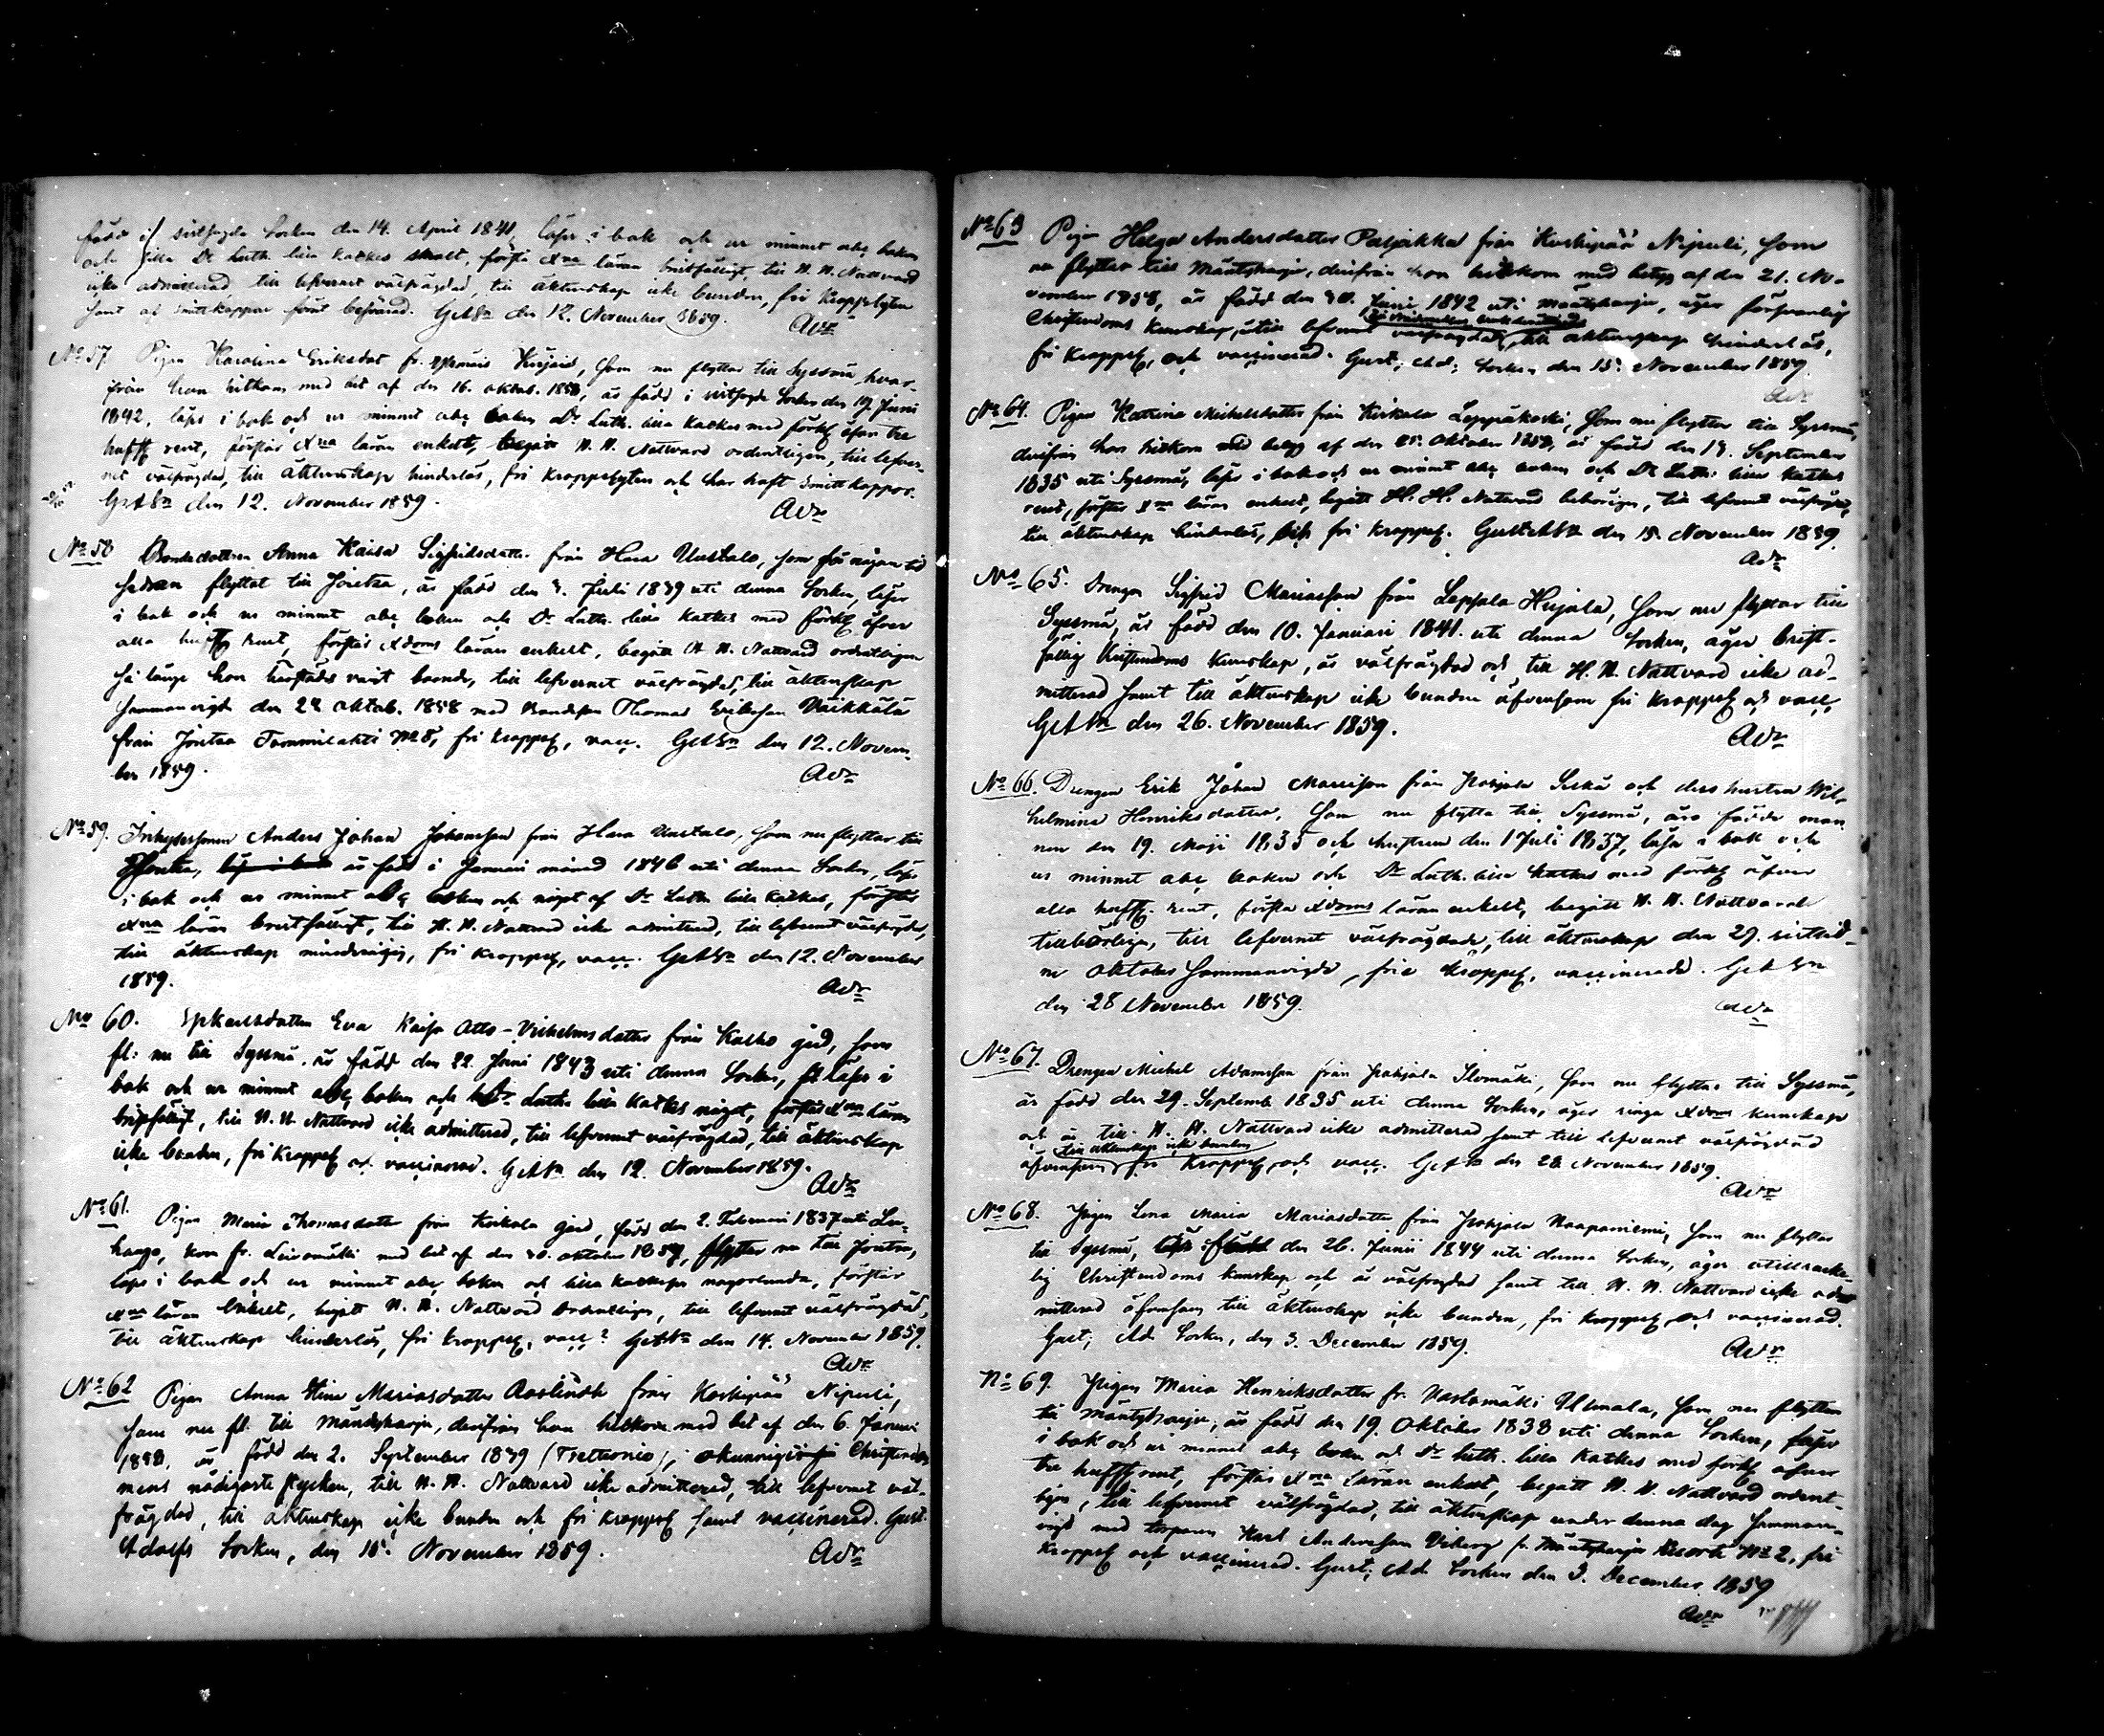 född i sistsagde Socken den 14. April 1841, läser i bok och ur minnet abc boken
och lilla Dr Luth. lilla Katkes, förstår Xna läran bristfälligt, till H. H. Nattvard
icke admitterad till lefvernet välfrägdad, till äktenskap icke bunden, fri kroppslyten
samt af smittkoppor förut befriad. GstAdSn den 12. November 1859. Adr
No 57 Pigan Karolina Eriksdot. fr. Kirjais, som nu flyttar till Syssmä, hvar-
ifrån hon hitkom med bet af den 16. oktob. 1858, är född i sistsagde Socken den 17 Juni
1842, läser i bok och ur minnet abc boken Dr Luth. lilla Katkes med förkl öfver tre
huffst rent, förstår Xna läran enkelt, begår H. H. Nattvard ordentligen, till lefver-
net välfrägdad, till äktenskap hinderlös, fri kroppslyten och har haft smittkoppor.
GstAdSn den 12. November 1859. Adr
No 58 Bondedottren Anna Kaisa Sigfridsdotter från Hara Uustalo, som för någon tid
sedan flyttat till Joutsa, är född den 3. Juli 1839 uti denna Socken, läser
i bok och ur minnet abc boken och Dr Luth. lilla Katkes med förkl öfver
alla huffst rent, förstår Xdoms läran enkelt, begått H. H. Nattvard ordentligen
så länge hon härstädes varit boende, till lefvernet välfrägdad, till äktenskap
sammanvigd den 24 oktob. 1858 med Bondeson Thomas Eriksson Väikkälä
från Joutsa Tammilahti No 8, fri kroppsf, vacc. GstAdSn den 12. Novem-
ber 1859. Adr
No 59. Inhysessonen Anders Johan Johansson från Hara Uustalo, som nu flyttar till
Joutsa, är född i Januari månad 1846 uti denna Socken, läser
i bok och ur minnet abc boken och något af Dr Luth. lilla Katkes, förstår
Xna läran bristfälligt, till H. H. Nattvard icke admitterad, till lefvernet välfrägdad,
till äktenskap minderårig, fri kroppsf, vacc. GstAdSn den 12. November
1859. Adr
No 60. Spkarlsdottren Eva Kaisa Otto-Vilhelmsdotter från Kalho gård, som
fl: nu till Syssmä, är född den 22. Juni 1843 uti denna Socken, läser i
bok och ur minnet abc boken och Dr. Luth. lilla Katkes något, förstår Xna läran
bristfälligt, till H. H. Nattvard icke admitterad, till lefvernet välfrägdad, till äktenskap
icke bunden, fri kroppsf och vaccinerad. GstAdSn den 12. November 1859. Adr
No 61. Pigan Maria Thomasdotter från Kirkola gård, född den 2. Februari 1837 uti Lu-
hango, kom fr. Leivomäki med bet af den 30. oktober 1857, flyttar nu till Joutsa,
läser i bok och ur minnet abc boken och lilla katkesen någorlunda, förstår
Xna läran enkelt, begått H. H. Nattvard ordentligen, till lefvernet välfrägdad,
till äktenskap hinderlös, fri kroppsf, vacc? GstAdSn den 14. November 1859.
Adr
No 62 Pigan Anna Stina Mariasdotter från Koskipää Nipuli,
som nu fl. till Mändyharju, derifrån hon hitkom med bet af den 6. Januari
1858, är född den 2. September 1839, okunnig i Christendo-
mens nödigaste stycken, till H. H. Nattvard icke admitterad, till lefvernet väl-
frägdad, till äktenskap icke bunden och fri kroppsf samt vaccinerad. Gust.
Adolfs Socken, den 15. November 1859. Adr
No 63 Pigan Helga Andersdotter Paljakka från Koskipää Nipuli, som
nu flyttar till Mäntyharju, derifrån hon hitkom med betyg af den 21. No-
vember 1858, är född den 30. Juni 1842 uti Mäntyharju, äger försvarlig
Christendoms kunskap, till lefvernet välfrägdad, till äktenskap hinderlös,
fri kroppsf, och vaccinerad. Gust; Ad; Socken den 15. November 1859.
Adr
No 64. Pigan Katrina Michelsdotter från Kirkola Leppäkoski, som nu flyttar till Syssmä,
derifrån hon hitkom med betyg af den 25. Oktober 1858, är född den 17. September
1835 uti Syssmä, läser i bok och ur minnet abc boken och Dr Luth. lilla Katkes
rent, förstår Xna läran enkelt, begått H. H. Nattvard behörigen, till lefvernet välfrägdad,
till äktenskap hinderlös, fri kroppsf. GustAdSn den 15. November 1859.
Adr
No 65. Drengen Sigfrid Mariasson från Leppola Heijala, som nu flyttar till
Syssmä, är född den 10. Januari 1841. uti denna Socken, äger brist-
fällig Kristendoms kunskap, är välfrägdad och till H. H. Nattvard icke ad-
mitterad samt till äktenskap icke bunden äfvensom fri kroppsf och vacc.
GstAdSn den 26. November 1859. Adr
No 66. Drengen Erik Johan Mariasson från Pohjola Seska och dess hustru Wil-
helmina Henriksdotter, som nu flytta till Syssmä, äro födde man-
nen den 19. Maji 1835 och hustrun den 1 Juli 1837, läsa i bok och
ur minnet abc boken och Dr Luth. lilla Katkes med förkl öfver
alla huffst. rent, förstå Xdoms läran enkelt, begått H. H. Nattvard
tillbörligen, till lefvernet välfrägdade, till äktenskap den 29. sistlid-
ne Oktober sammanvigde, fria kroppsf, vaccinerade. GstAdSn
den 28 November 1859. Adr
No 67. Drengen Michel Adamsson från Pohjola Ilomäki, som nu flyttar till Syssmä,
är född den 29. Septemb 1835 uti denna Socken, äger ringa Xdoms kunskap
och är till H. H. Nattvard icke admitterad samt till lefvernet välfrägdad
till äktenskap icke bunden
äfvensom fri kroppsf och vacc. GstAdSn den 28 November 1859.
Adr
No 68. Pigan Lena Maria Mariasdotter från Pohjola Haapaniemi, som nu flyttar
till Syssmä, född den 26. Junii 1844 uti denna Socken, äger otillräcke-
lig Christendoms kunskap och är välfrägdad samt till H. H. Nattvard icke ad-
mitterad äfvensom till äktenskap icke bunden, fri kroppsf och vaccinerad.
Gust; Ad. Socken, den 3. December 1859. Adr
No 69. Pigan Maria Henriksdotter fr. Vastamäki Ulmala, som nu flyttar
till Mäntyharju, är född den 19. Oktober 1838 uti denna Socken, läser
i bok och ur minnet abc boken och Dr Luth. lilla Katkes med förkl öfver
tre huffst rent, förstår Xna läran enkelt, begått H. H. Nattvard ordent-
ligen, till lefvernet välfrägdad, till äktenskap under denna dag samman-
vigd med torparen Karl Andersson Viberg fr Mäntyharju No 2, fri
kroppsf och vaccinerad. Gust; Ad. Socken den 3. December 1859
Adr